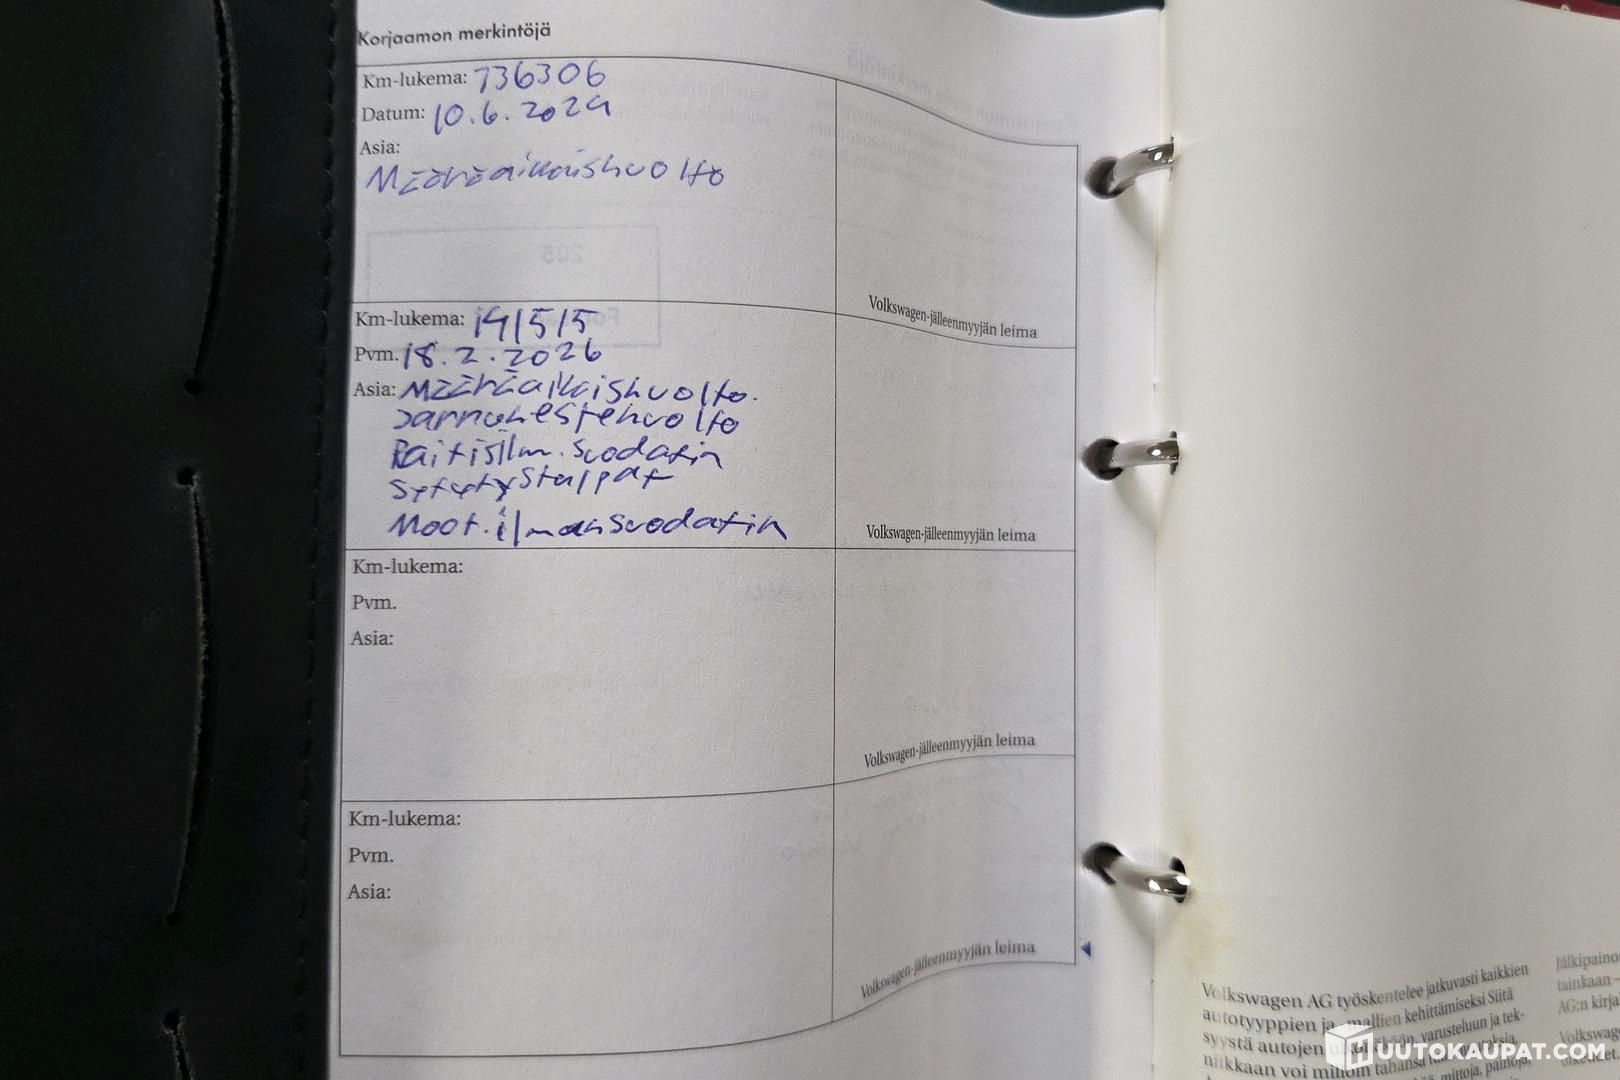 Korjaamon merkintöjä
Km-lukema: 136306
Datum: 10.6.2024
Asia:
Määräaikaishuolto
Volkswagen-jälleenmyyjän leima
Km-lukema: 141515
Pvm. 18.2.2026
Asia: Määräaikaishuolto.
Jarrunestehuolto
Raitisilm. suodatin
Sytytystulpat
Moot. ilmansuodatin
Volkswagen-jälleenmyyjän leima
Km-lukema:
Pvm.
Asia:
Volkswagen-jälleenmyyjän leima
Km-lukema:
Pvm.
Asia:
Volkswagen-jälleenmyyjän leima
Volkswagen AG työskentelee jatkuvasti kaikkien
autotyyppien ja mallien kehittämiseksi Siitä
syystä autojen varusteluun ja tek-
niikkaan voi milloin tahansa
mittoja, painoja,
Jälkipaino
tainkaan –
AG:n kirja
Volkswage
HUUTOKAUPAT.COM